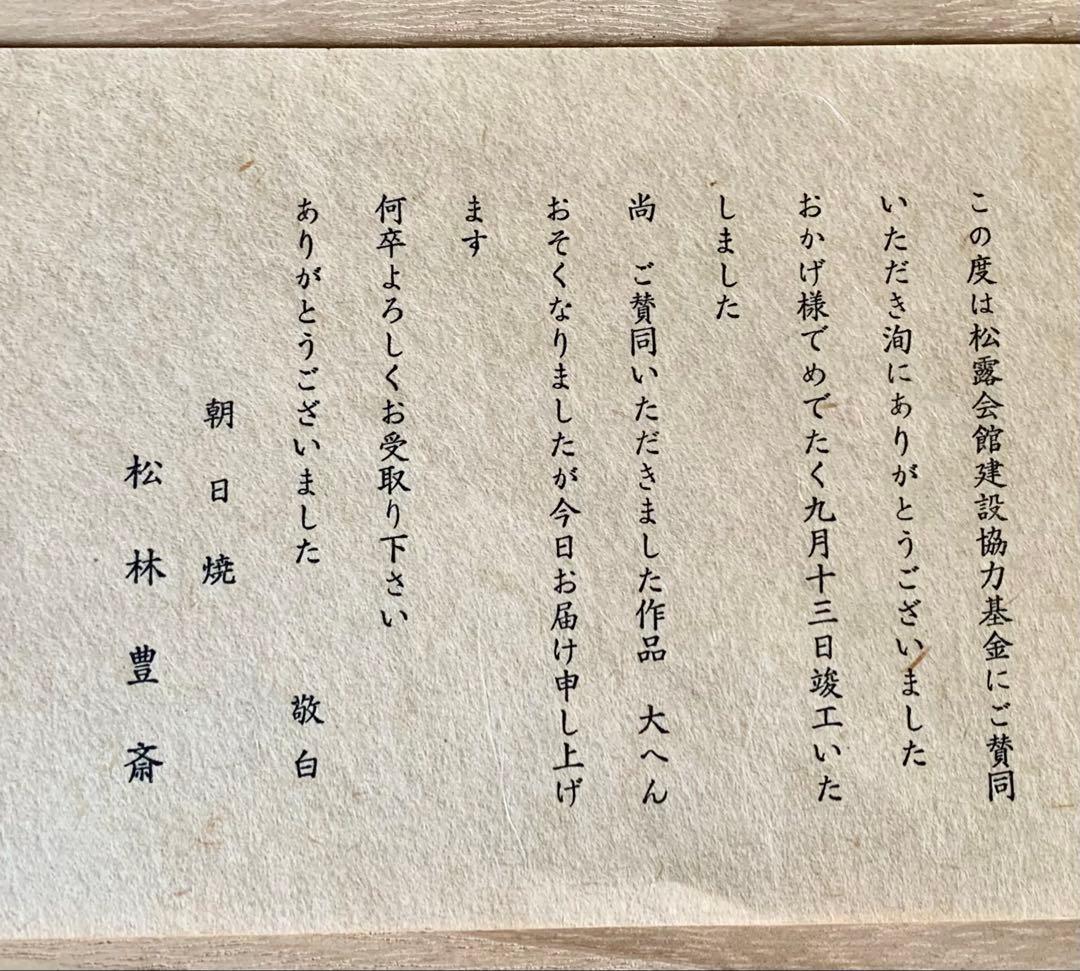 この度は松露会館建設協力基金にご賛同
いただき洵にありがとうございました
おかげ様でめでたく九月十三日竣工いた
しました
尚　ご賛同いただきました作品　大へん
おそくなりましたが今日お届け申し上げ
ます
何卒よろしくお受取り下さい
ありがとうございました　　　敬白
朝日焼
松林豊斎